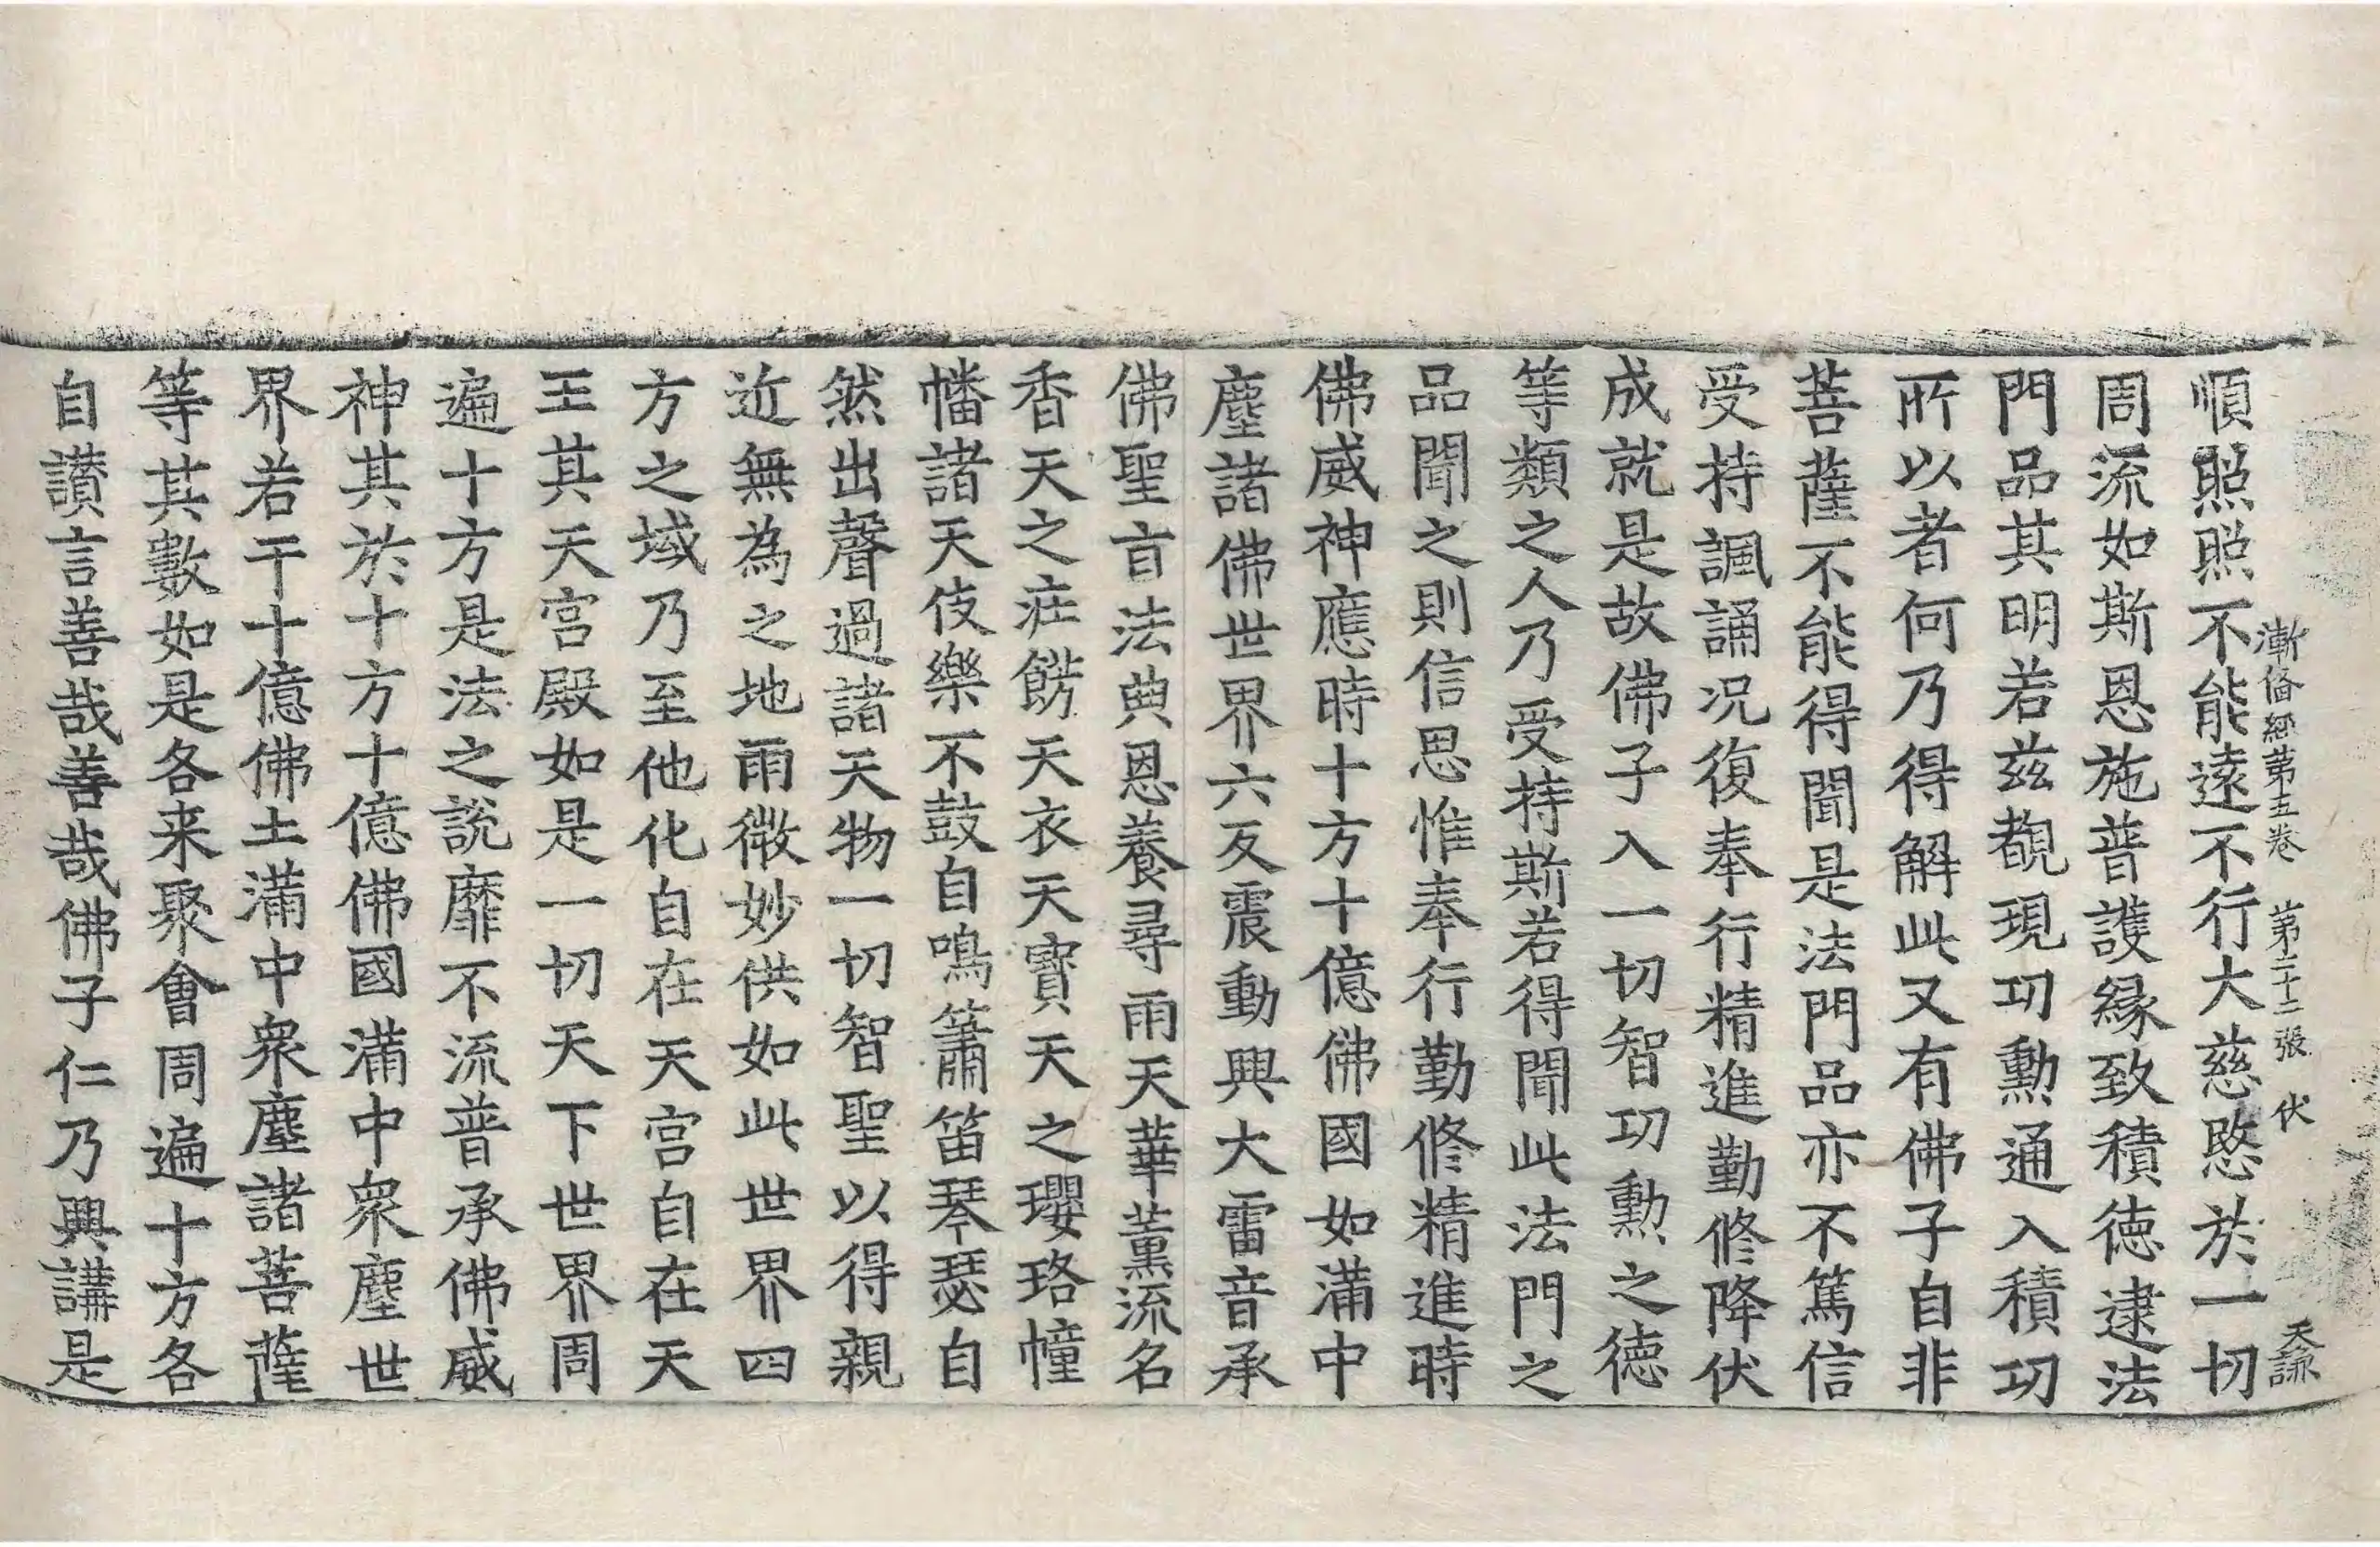 漸俻經第五卷 第二十二張 伏 天諒
順照照不能遠不行大慈愍於一切
周流如斯恩施普護縁致積徳逮法
門品其明若兹覩現功勲通入積功
所以者何乃得解此又有佛子自非
菩薩不能得聞是法門品亦不篤信
受持諷誦况復奉行精進勤修降伏
成就是故佛子入一切智功勲之徳
等類之人乃受持斯若得聞此法門之
品聞之則信思惟奉行勤修精進時
佛威神應時十方十億佛國如滿中
塵諸佛世界六反震動興大雷音承
佛聖旨法典恩養尋雨天華薫流名
香天之疰餝天衣天寶天之瓔珞幢
幡諸天伎樂不鼓自鳴簫笛琴瑟自
然出聲過諸天物一切智聖以得親
近無為之地雨微妙供如此世界四
方之域乃至他化自在天宫自在天
王其天宫殿如是一切天下世界周
遍十方是法之說靡不流普承佛威
神其於十方十億佛國滿中衆塵世
界若干十億佛土滿中衆塵諸菩薩
等其數如是各来聚會周遍十方各
自讃言善哉善哉佛子仁乃興講是